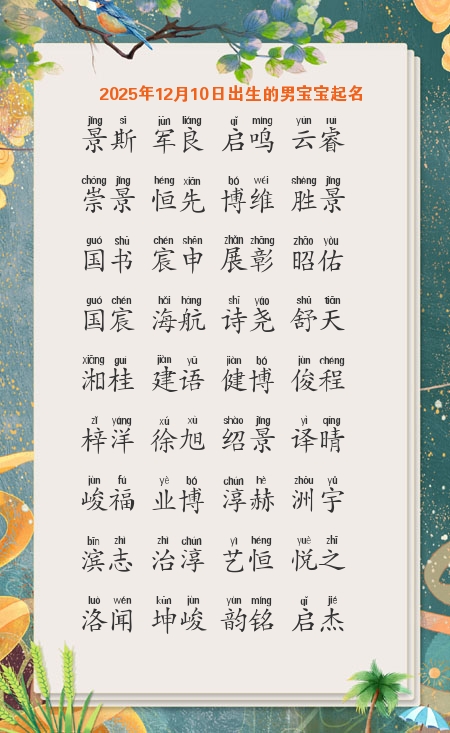 2025年12月10日出生的男宝宝起名
jǐng sī jūn liáng qǐ míng yún ruì
景斯 军良 启鸣 云睿
chóng jǐng héng xiān bó wéi shèng jǐng
崇景 恒先 博维 胜景
guó shū chén shēn zhǎn zhāng zhāo yòu
国书 宸申 展彰 昭佑
guó chén hǎi háng shī yáo shū tiān
国宸 海航 诗尧 舒天
xiāng guì jiàn yǔ jiàn bó jùn chéng
湘桂 建语 健博 俊程
zǐ yáng xú xù shào jǐng yì qíng
梓洋 徐旭 绍景 译晴
jùn fú yè bó chún hè zhōu yǔ
峻福 业博 淳赫 洲宇
bīn zhì zhì chún yì héng yuè zhī
滨志 治淳 艺恒 悦之
luò wén kūn jùn yùn míng qǐ jié
洛闻 坤峻 韵铭 启杰